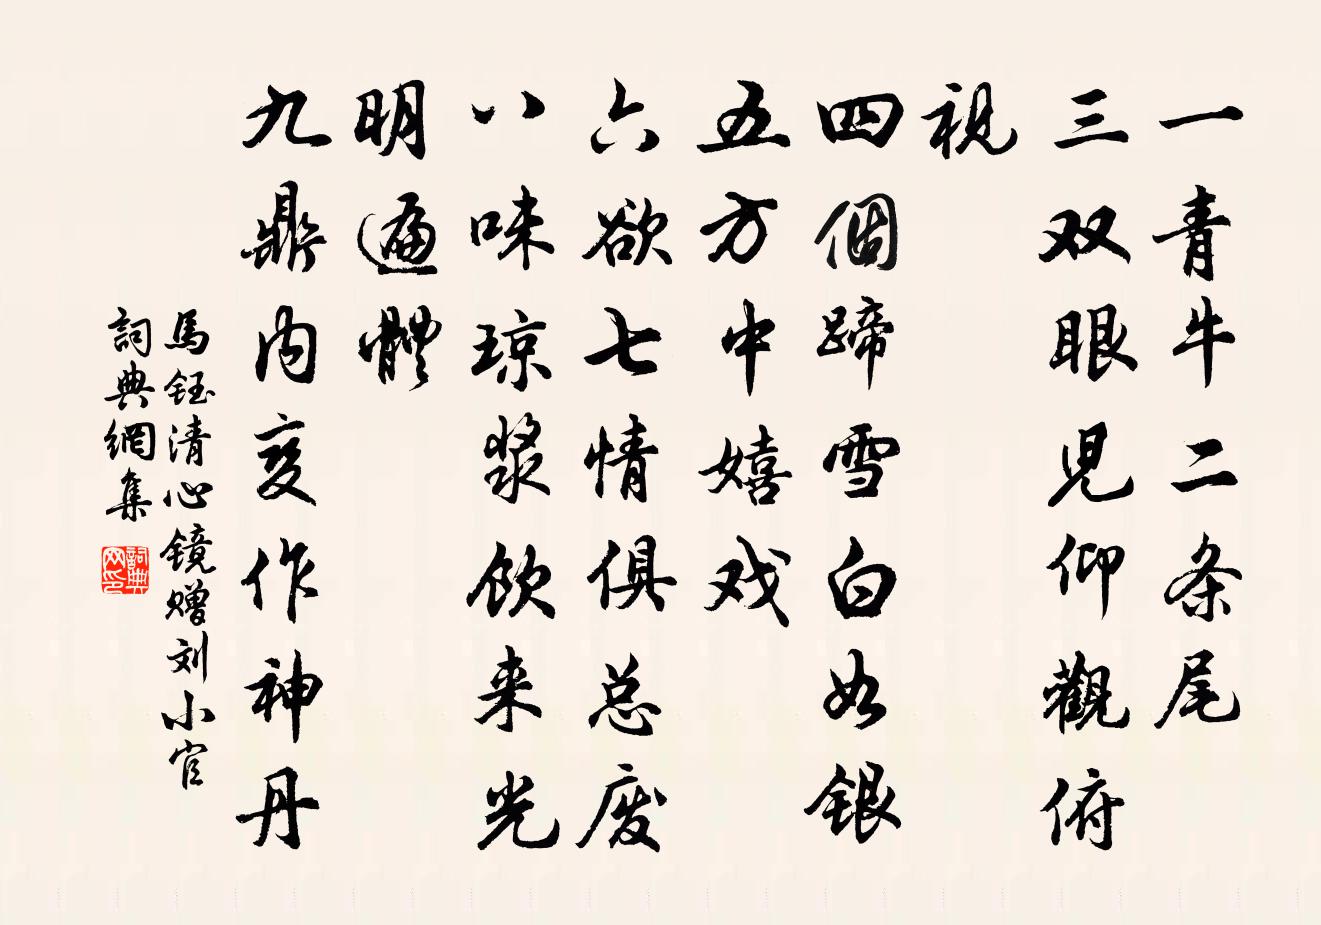 一青牛二条尾
三双眼児仰觀俯
視
四個蹄雪白如銀
五方中嬉戏
六欲七情俱总廢
八味琼漿飲来光
明遍體
九鼎内変作神丹
馬鈺清心镜赠刘小官
詞典網集
詞典网印